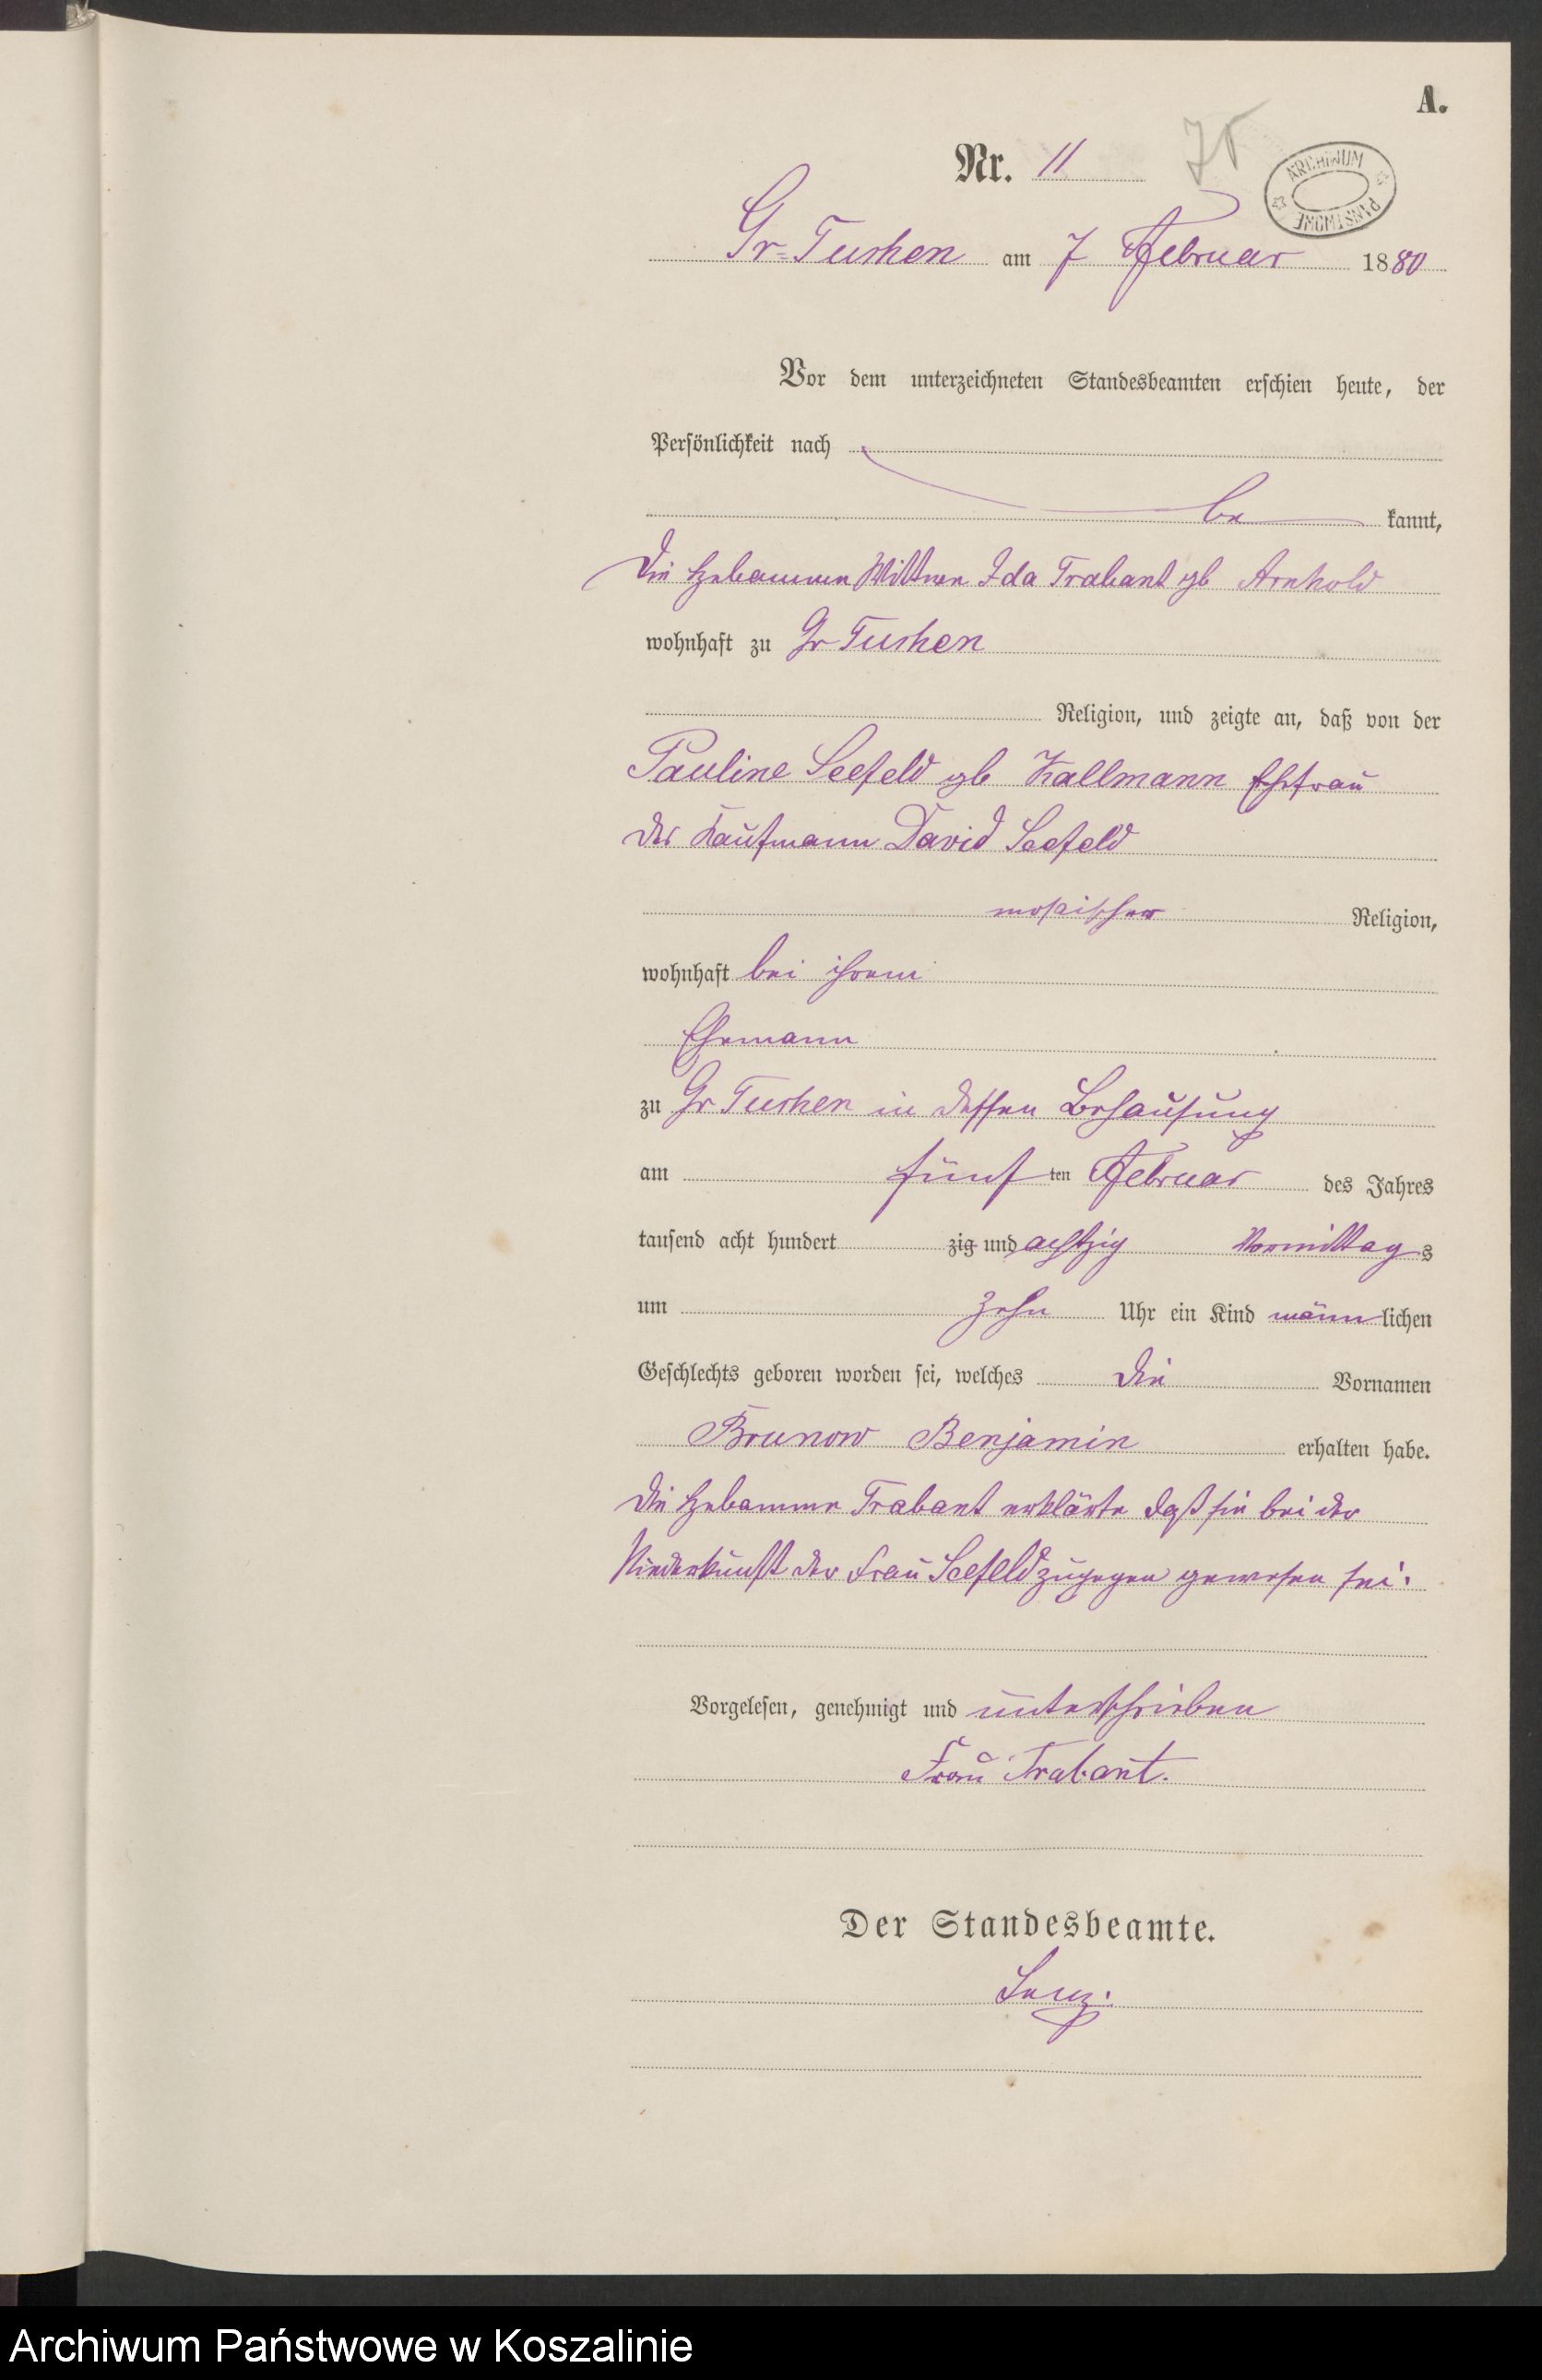 A.
Nr. 11
75
ARCHIWUM PAŃSTWOWE
Gr-Tuchen am 7 Februar 1880
Vor dem unterzeichneten Standesbeamten erschien heute, der
Persönlichkeit nach
be kannt,
die Hebamme Wittwe Ida Trabant gb Arnhold
wohnhaft zu Gr Tuchen
Religion, und zeigte an, daß von der
Pauline Seefeld gb Kallmann Ehefrau
des Kaufmann David Seefeld
mosaischer Religion,
wohnhaft bei ihrem
Ehemann
zu Gr Tuchen in dessen Behausung
am fünf ten Februar des Jahres
tausend acht hundert zig und achtzig Vormittags
um zehn Uhr ein Kind männlichen
Geschlechts geboren worden sei, welches die Vornamen
Brunow Benjamin erhalten habe.
die Hebamme Trabant erklärte daß sie bei der
Niederkunft der Frau Seefeld zugegen gewesen sei.
Vorgelesen, genehmigt und unterschrieben
Frau Trabant.
Der Standesbeamte.
Archiwum Państwowe w Koszalinie